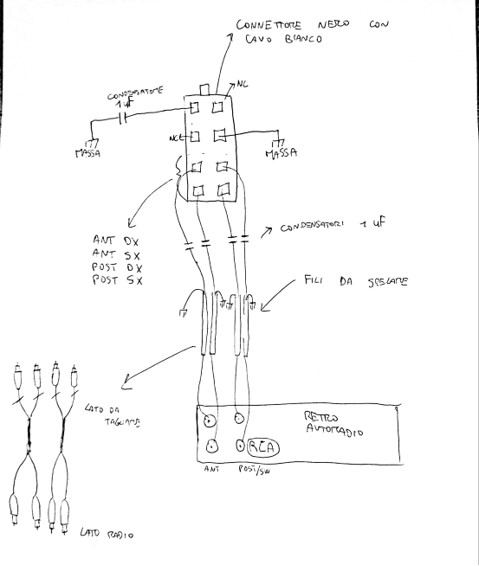 CONNETTORE NERO CON
CAVO BIANCO
NC
CONDENSATORE
1 uF
NC
MASSA
MASSA
ANT DX
ANT SX
POST DX
POST SX
CONDENSATORI 1 uF
FILI DA SPELARE
LATO DA
TAGLIARE
RETRO
AUTORADIO
RCA
ANT
POST/SW
LATO RADIO